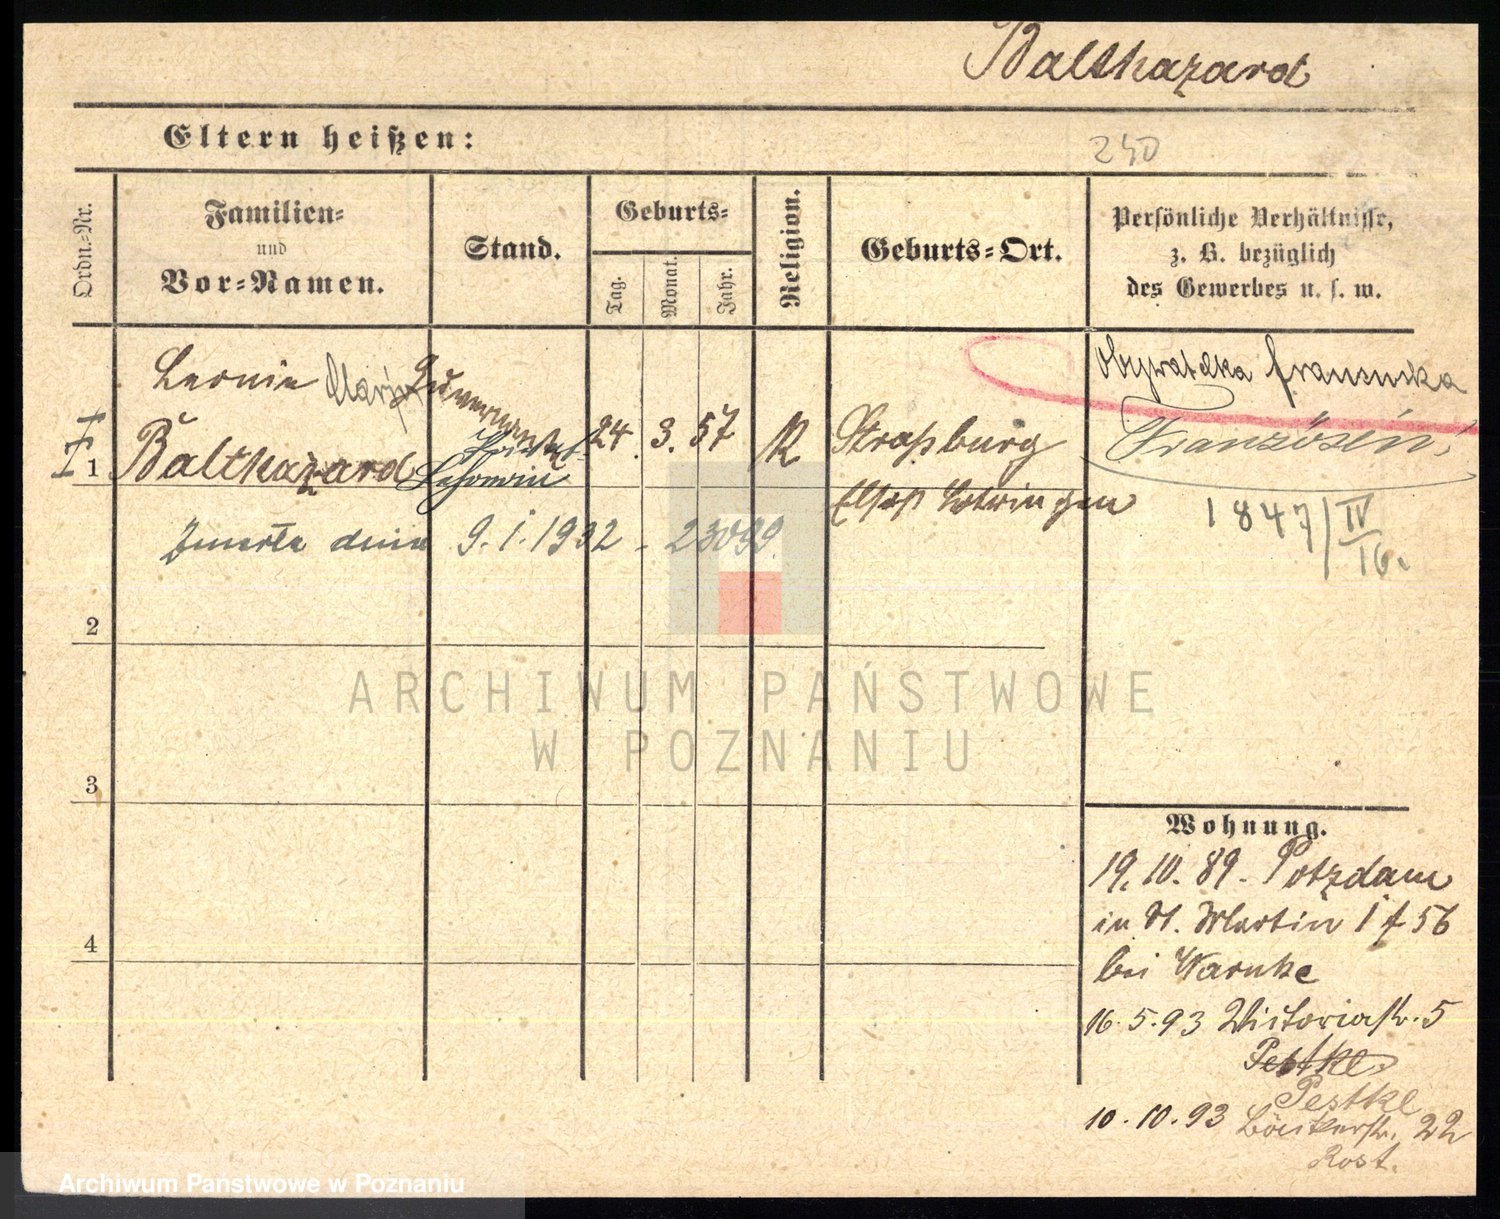 Balthazard
Eltern heißen:
240
Ordn.-Nr.
Familien-
und
Vor-Namen.
Stand.
Geburts-
Tag.
Monat.
Jahr.
Religion.
Geburts-Ort.
Persönliche Verhältnisse,
z. B. bezüglich
des Gewerbes u. s. w.
Leonie Marie
Obywatelka francuska
1
Balthazard
Lehrerin
24. 3. 57
K
Straßburg
Französin
Elsaß Lotringen
1847/IV
16.
Zmarła dnia 9.1.1932 - 23099
2
ARCHIWUM PAŃSTWOWE
W POZNANIU
3
4
Wohnung.
19.10.89. Potzdam
in St. Martin 56
bei Warnke
16.5.93 Victoriastr. 5
Pestke
Pestke
10.10.93 22
Rost.
Archiwum Państwowe w Poznaniu